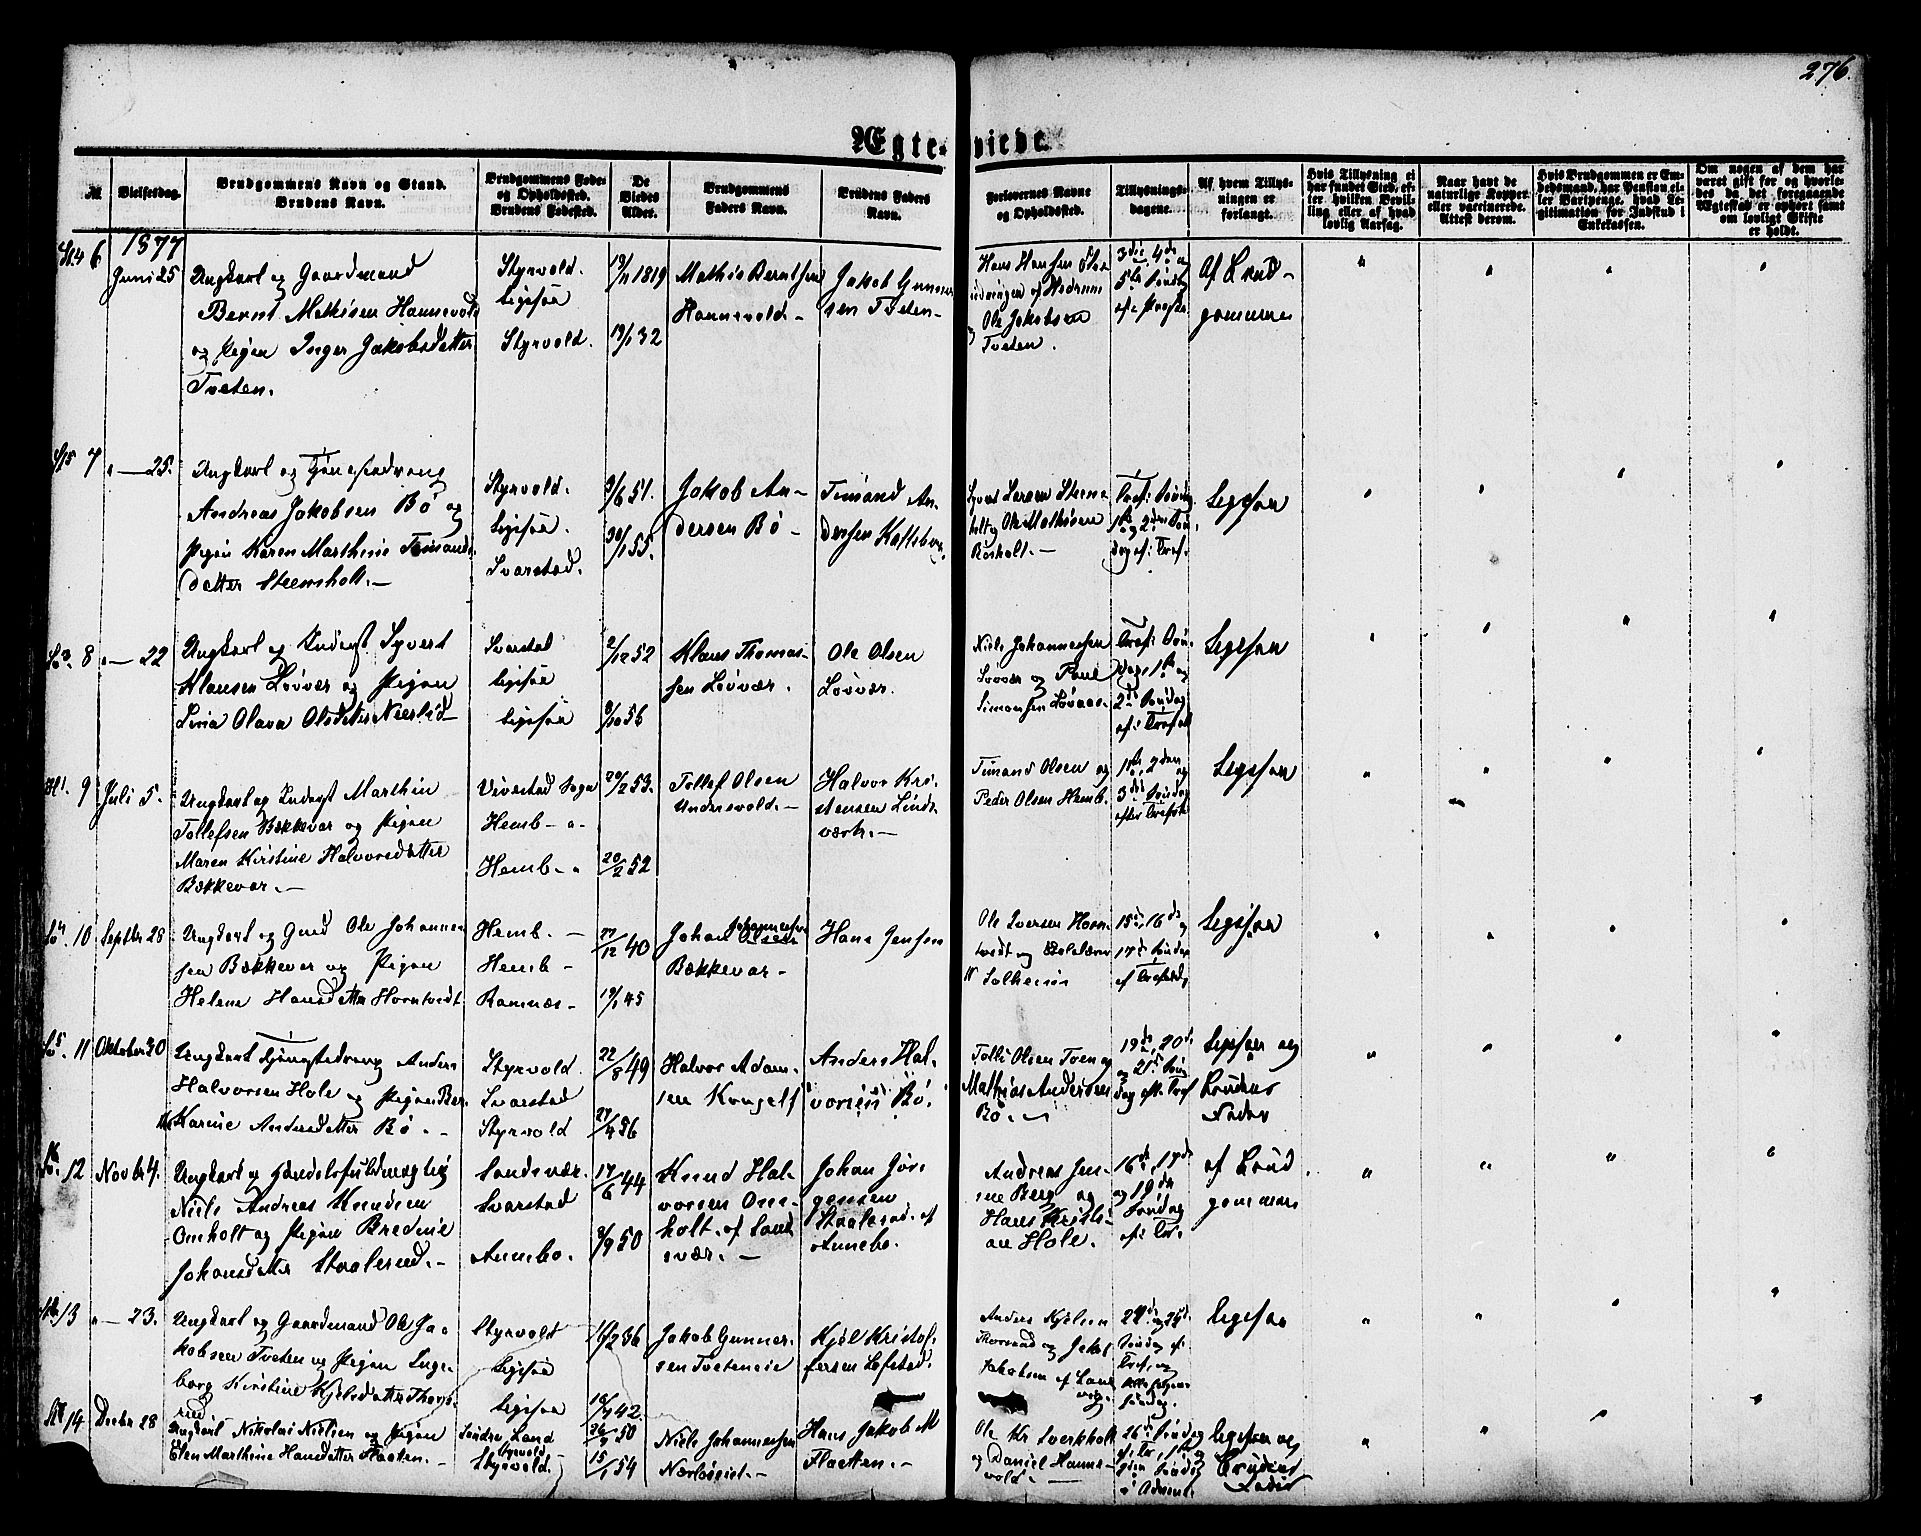 276.
Ægte- viede
№
Vielsesdag.
Brudgommens Navn og Stand.
Brudens Navn.
Brudgommens Føde-
og Opholdssted.
Brudens Fødested.
De
Viedes
Alder.
Brudgommens
Faders Navn.
Brudens Faders
Navn.
Forlovernes Navne
og Opholdssted.
Tillysnings-
dagene.
Af hvem Tillys-
ningen er
forlangt.
Hvis Tillysning ei
har fundet Sted, ef-
ter hvilken Bevil-
ling eller af hvad
lovlig Aarsag.
Naar havt de
naturlige Kopper
eller vaccinerede.
Attest derom.
Hvis Brudgommen er Em-
bedsmand, har Pension el-
ler Vartpenge, hvad Le-
gitimation for Indskud i
Enkekassen.
Om nogen af dem har
været gift før og hvorle-
des da det foregaaende
Ægteskab er ophørt samt
om lovligt Skifte
er holdt.
1877
6
Juni 25
Ungkarl og Gaardmand
Bernt Mathisen Hannevold
og Pigen Inger Jakobsdatter
Tveten.
Styrvold.
ligesaa
Styrvold.
19/11 1819
19/1 32
Mathis Berntsen
Hannevold -
Jakob Gunner
sen Tveten -
Hans Hansen
af Hedrum
Ole Jakobsen
Tveten.
3die, 4de og
5te Søndag
Af Brud-
gommen
7
" — 25.
Ungkarl og Tjenestedreng
Andreas Jakobsen Bø og
Pigen Karen Marthine Timands
datter Steensholt. -
Styrvold.
ligesaa.
Svarstad.
9/6 51.
30/1 55.
Jakob An-
dersen Bø -
Timand An-
dersen
Larsen Steens
holt og Ole Mathisen
Røsholt. -
Tref: Søndag
1ste og 2den Søn
dag ef: Tref.
Ligesaa
8
" — 22
Ungkarl og Inderst Syvert
Klausen Løvvær og Pigen
Olava Olsdatter
Svarstad
ligesaa
ligesaa
2/12 52
8/10 56
Klaus Thomas-
sen Løvvær.
Ole Olsen
Løvvær.
Niels Johannessen
Løvvær og Paul
Simonsen Løvaas -
Tref: Søn-
dag, 1ste og
2de Søndag
ef: Trefol
Ligesaa
9
Juli 5.
Ungkarl og Inderst Marthin
Tollefsen Bækkevar og Pigen
Maren Kirstine Halvorsdatter
Bækkevar. -
Vivestad Sogn
Hemb - "-
Hemb - "
20/2 53.
20/2 52
Tollef Olsen
Undersvold. -
Halvor Kri-
stensen Linds
værk. -
Timand Olsen og
Peder Olsen Hemb.
1ste, 2den og
3de Søndag
efter Trefol
Ligesaa
10
Septbr 28
Ungkarl og Gmd Ole Johannes
sen Bækkevar og Pigen
Helene Hansdatter Horntvedt
Hemb. -
Hemb -
Ramnæs -
27/12 40
19/1 45
Johan Johannessen
Bækkevar -
Hans Jensen
Ole Iversen Horn
tvedt og Skolelærer
Solheim
15de, 16de og
17de Søndag
ef Trefoldg
Ligesaa
11
Oktober 30
Ungkarl Tjenestedreng Anders
Halvorsen Hole og Pigen Ber
Karine Andersdatter Bø. -
Styrvold.
Svarstad
Styrvold
22/8 49
27/4 56
Halvor Adam-
sen Kongelf
Anders Hal-
vorsen Bø.
Olsen Tveen og
Mathias Andersen
Bø. -
19de, 20de
og 21de Søn
dag eft. Tref
Ligesaa og
Brudens
Fader
12
Novbr 4.
Ungkarl og Handelsfuldmægtig
Niels Andreas Knudsen
Omholt og Pigen Bredine
Johansdatter Staalerud. -
Sandsvær.
Svarstad
Annebo.
17/6 44
9/9 50
Knud Hal-
vorsen Om-
holt. af Sand
svær. -
Johan Jør-
gensen
Staalerud. af
Annebo.
Andreas Jen-
sen Berg og
Hans Kristi-
an Hole.
16de, 17de
og 19de
Søndag
ef: Tr.
af Brud
gommen
13
" — 23.
Ungkarl og Gaardmand Ole Ja-
kobsen Tveten og Pigen Inge-
borg Kirstine Kjelsdatter Thors-
rud
Styrvold
ligesaa
ligesaa
36
42.
Jakob Gunner-
sen Tveteneie
Kjøl Kristof-
fersen Lofstad.
Anders Kjelsen
Thorsrud og Jakob
Jakobsen af Laur
vig.
24de og 25de
Søndag ef:
Tref. og
Søndag.
ligesaa
14
Decbr 28
Ungkarl Nikolai Nielsen og Pigen
Elen Marthine Hansdatter Flaatten. -
Søndre Land
Styrvold
Styrvold.
50
15/1 54
Niels Johannessen
Hans Jakob M
Flaatten. -
Ole Kr Sverkholt
og Daniel Hanne-
vold. -
26de Søndag
ef: Tr, 1ste
Søndag
i Advent
ligesaa og
Brudens
Fader